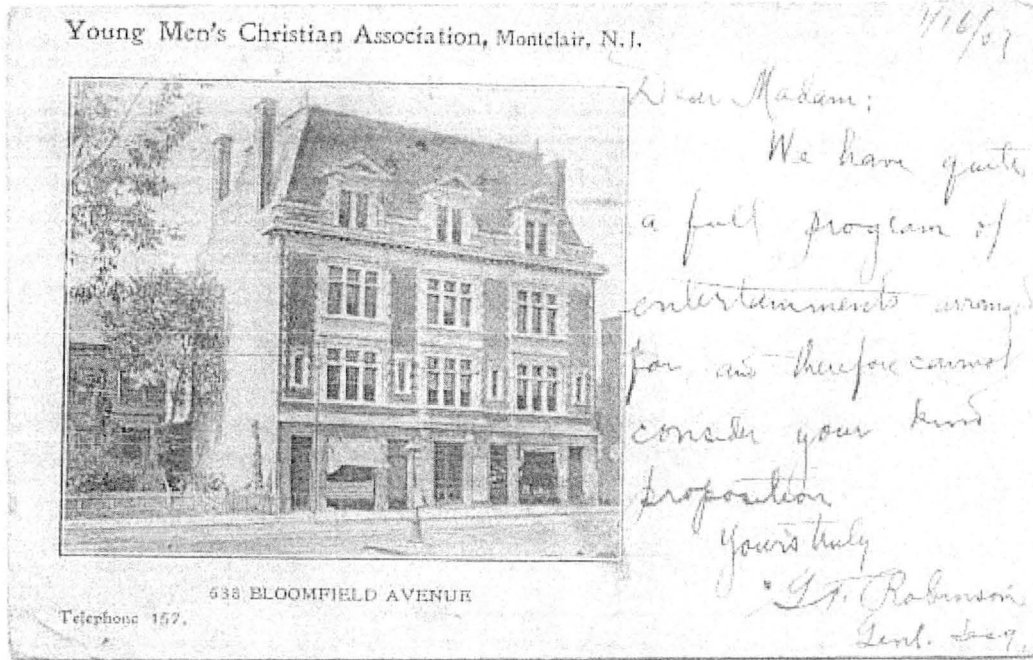 Young Men's Christian Association, Montclair, N.J.
Dear Madam:
We have quite
a full program of
entertainments arrang
for and therefore cannot
consider your kind
proposition
Yours truly
Robinson
Genl. Secy
638 BLOOMFIELD AVENUE
Telephone 157.